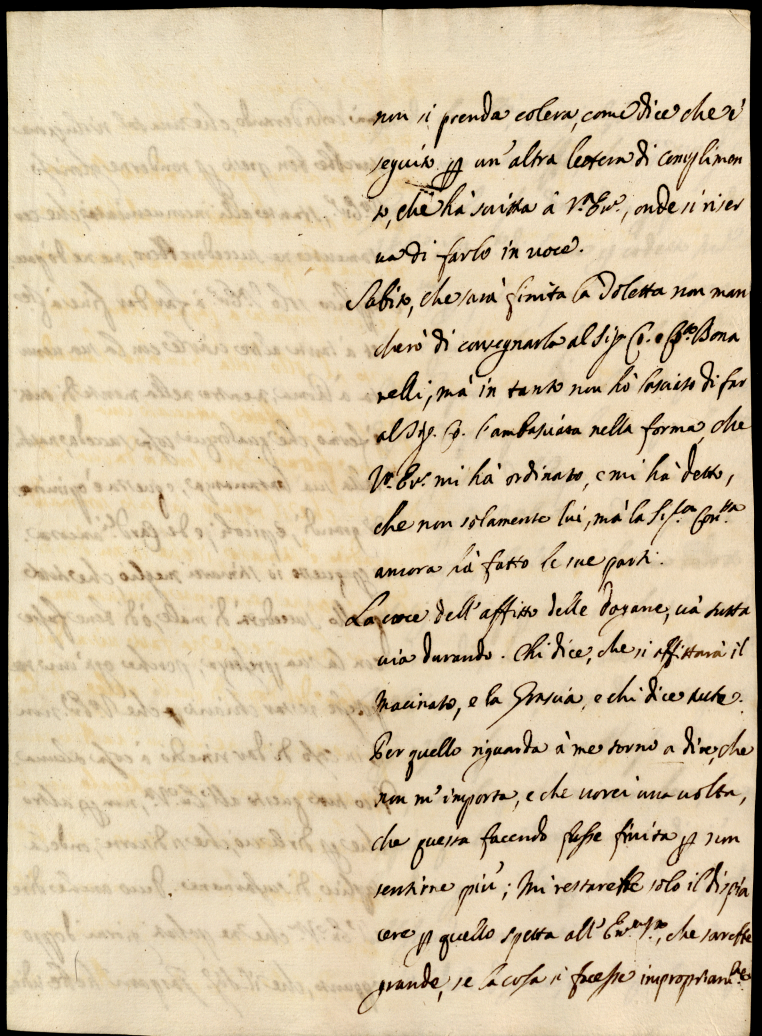 non si prenda colera, come dice che è
seguito p un'altra lettera di complimen
to, che hà scritta à V.ra Em.a, onde si riser
ua di farlo in uoce.
Subito, che sarà finita la Toletta non man
cherò di consegnarla al Sig.r Co. e Bona
relli, mà in tanto non hò lasciato di far
al Sig.r Co. l'ambasciata nella forma, che
V.ra Em.a mi hà ordinato, e mi hà detto,
che non solamente lui, mà la Sig.ra Con.ssa
ancora hà fatto le sue parti.
La uoce dell'affitto delle Dogane, uà tutta
uia durando. Chi dice, che si affittarà il
Macinato, e la Grascia, e chi dice tutte.
Per quello riguarda à me torno a dire, che
non m'importa, e che uorei una uolta,
che questa facenda fusse finita p non
sentirne più; Mi restarebbe solo il dispia
cere p quello spetta all'Em.za V.ra, che sarebbe
grande, se la cosa si facesse impropriam.te